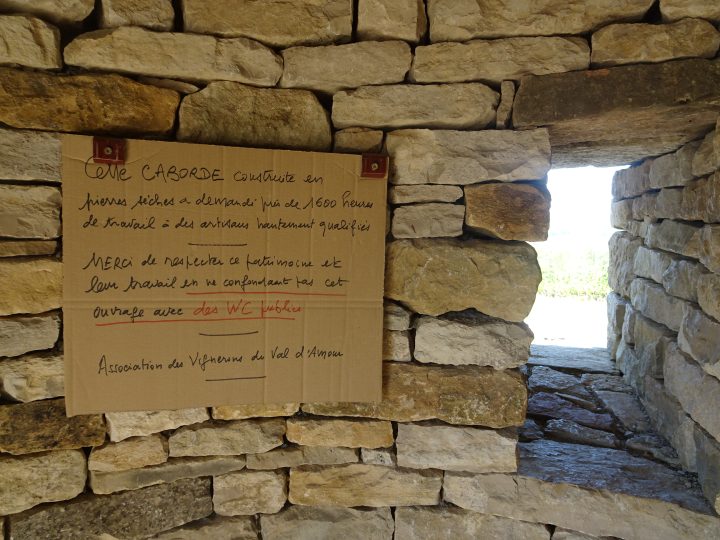 Cette CABORDE construite en
pierres sèches a demandé près de 1600 heures
de travail à des artisans hautement qualifiés
MERCI de respecter ce patrimoine et
leur travail en ne confondant pas cet
ouvrage avec des WC publics
Association des Vignerons du Val d'Amour